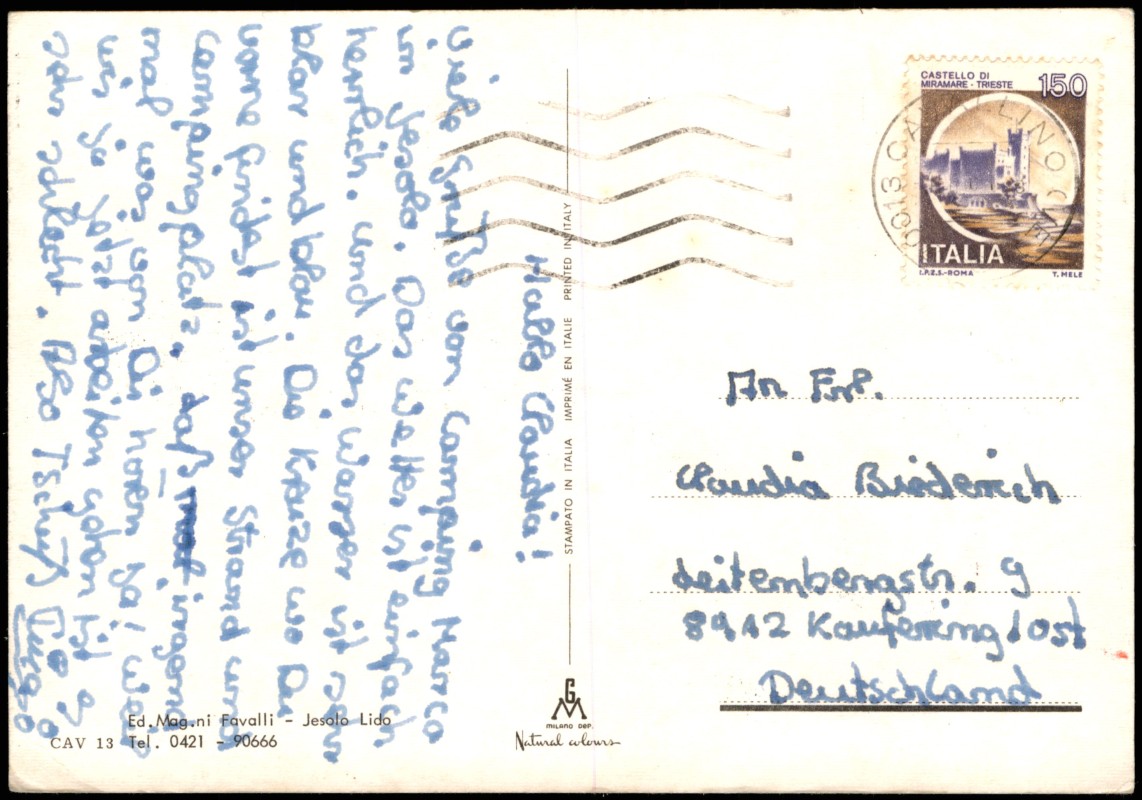 Hallo Claudia!
Viele Grüße von Camping Marco
im Jesolo. Das wetter ist einfach
herrlich. und das Wasser ist sehr
klar und blau. Die Kreuze wo Du
vorne findest ist unser Strand und
Campingplatz. daß ingend
mal was von Dir hören ga! weil
mit ja jetzt
sehr schlecht. Also Tschüß
STAMPATO IN ITALIA IMPRIMÉ EN ITALIE PRINTED IN ITALY
CASTELLO DI
MIRAMARE - TRIESTE
150
ITALIA
I.P.Z.S.-ROMA T. MELE
An Frl.
Claudia Biederich
Leitenbergstr. 9
8912 Kaufering / ost
Deutschland
Ed. Mag.ni Favalli - Jesolo Lido
CAV 13 Tel. 0421 - 90666
GM
MILANO DEP.
Natural colours